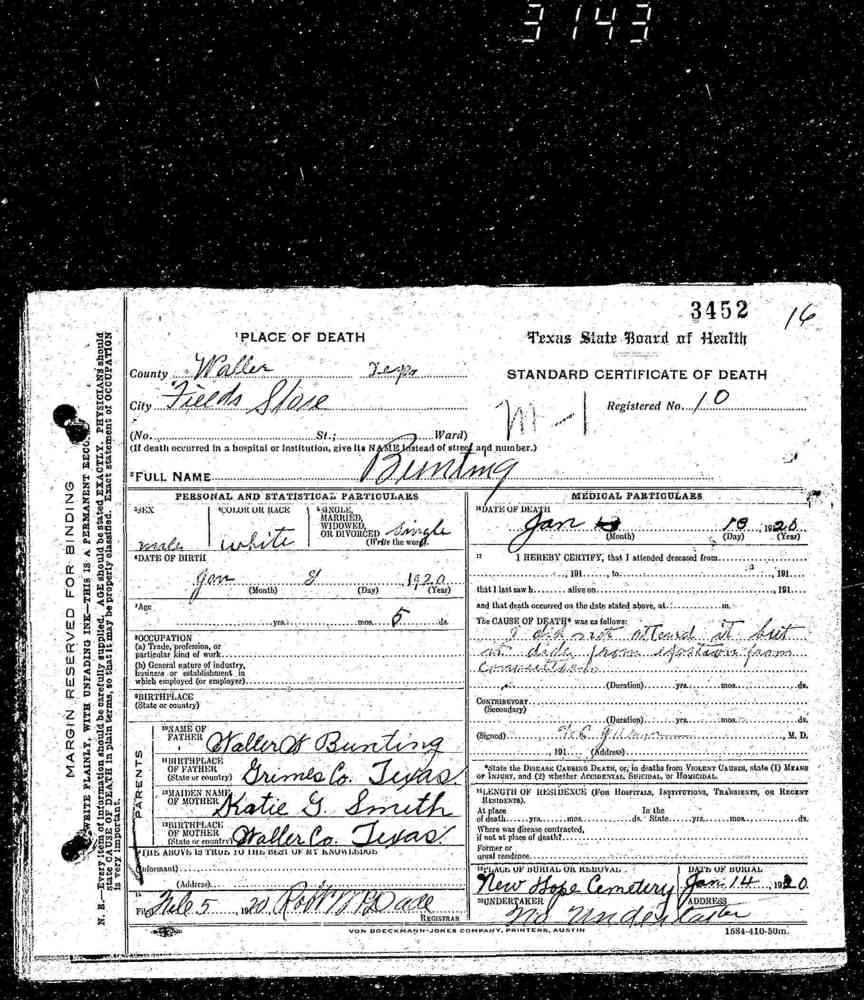 3143
3452 16
¹PLACE OF DEATH
Texas State Board of Health
County Waller Texas
STANDARD CERTIFICATE OF DEATH
City Fields Store
M-1 Registered No. 10
(No. St.; Ward)
(If death occurred in a hospital or institution, give its NAME instead of street and number.)
²FULL NAME Bunting
PERSONAL AND STATISTICAL PARTICULARS
³SEX
male
⁴COLOR OR RACE
white
⁵SINGLE,
MARRIED,
WIDOWED,
OR DIVORCED Single
(Write the word)
⁶DATE OF BIRTH
Jan 1920
(Month) (Day) (Year)
⁷Age
yrs. mos. 5 ds.
⁸OCCUPATION
(a) Trade, profession, or
particular kind of work
(b) General nature of industry,
business or establishment in
which employed (or employer)
⁹BIRTHPLACE
(State or country)
PARENTS
¹⁰NAME OF
FATHER Waller W Bunting
¹¹BIRTHPLACE
OF FATHER
(State or country) Grimes Co. Texas
¹²MAIDEN NAME
OF MOTHER Katie G. Smith
¹³BIRTHPLACE
OF MOTHER
(State or country) Waller Co. Texas
¹⁴THE ABOVE IS TRUE TO THE BEST OF MY KNOWLEDGE
(Informant)
(Address)
¹⁵
Filed Feb 5, 1920
REGISTRAR
MEDICAL PARTICULARS
¹⁶DATE OF DEATH
Jan 13 1920
(Month) (Day) (Year)
¹⁷ I HEREBY CERTIFY, that I attended deceased from
, 191 , to , 191
that I last saw h alive on , 191
and that death occurred on the date stated above, at m.
The CAUSE OF DEATH* was as follows:
I did not attend it but
from from
(Duration) yrs. mos. ds.
CONTRIBUTORY
(Secondary)
(Duration) yrs. mos. ds.
(Signed) , M. D.
, 191 (Address)
*State the DISEASE CAUSING DEATH, or, in deaths from VIOLENT CAUSES, state (1) MEANS
OF INJURY, and (2) whether ACCIDENTAL, SUICIDAL, or HOMICIDAL.
¹⁸LENGTH OF RESIDENCE (FOR HOSPITALS, INSTITUTIONS, TRANSIENTS, OR RECENT
RESIDENTS).
At place In the
of death yrs. mos. ds. State yrs. mos. ds.
Where was disease contracted,
if not at place of death?
Former or
usual residence
¹⁹PLACE OF BURIAL OR REMOVAL
New Hope Cemetery
DATE OF BURIAL
Jan. 14, 1920
²⁰UNDERTAKER
No Undertaker
ADDRESS
VON BOECKMANN-JONES COMPANY, PRINTERS, AUSTIN
1584-410-50m.
MARGIN RESERVED FOR BINDING
WRITE PLAINLY, WITH UNFADING INK—THIS IS A PERMANENT RECORD.
N. B.—Every item of information should be carefully supplied. AGE should be stated EXACTLY. PHYSICIANS should
state CAUSE OF DEATH in plain terms, so that it may be properly classified. Exact statement of OCCUPATION
is very important.